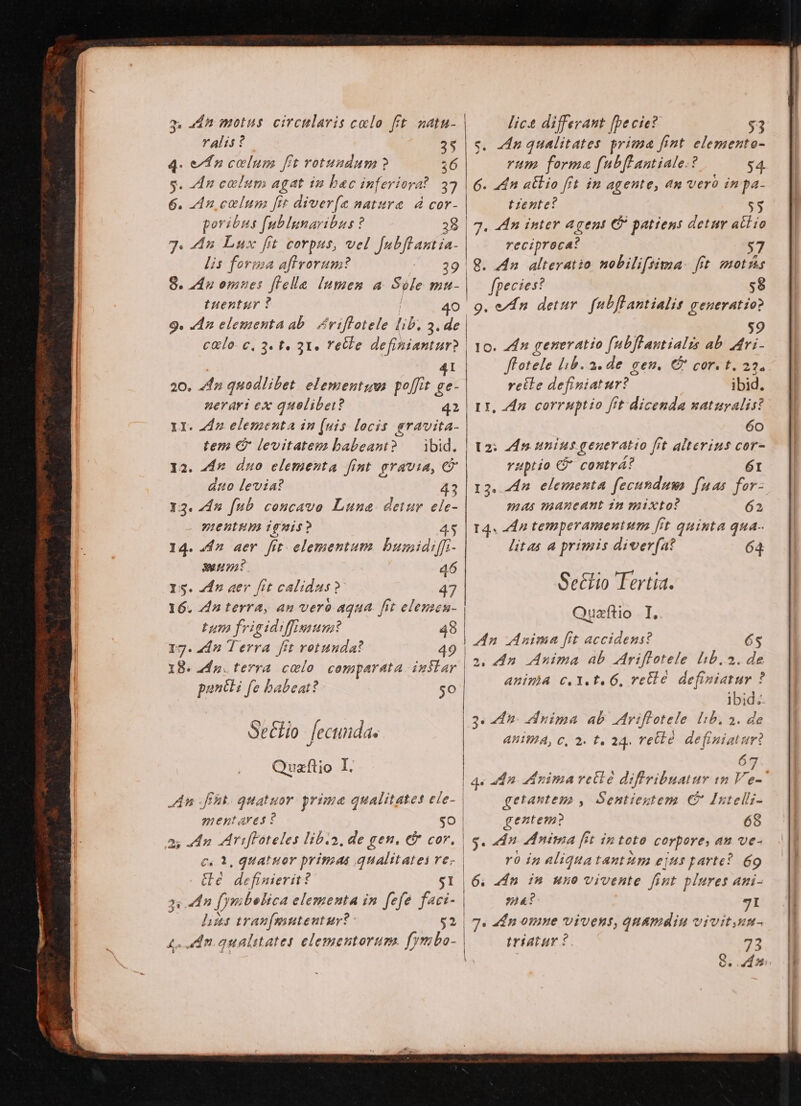 3. An motus circularis cœlo ſit natu-
ralis? 35
4. An cœlum ſit rotundum? 36
5. An cœlum agat in hæc inferiora? 37
6. An cœlum ſit diverſæ naturæ à cor-
poribus ſublunaribus? 38
7. An Lux ſit corpus, vel ſubſtantia-
lis forma aſtrorum? 39
8. An omnes ſtellæ lumen a Sole mu-
tuentur? 40
9. An elementa ab Ariſtotele lib. 3. de
cœlo c. 3. t. 31. recte definiantur?
41
10. An quodlibet elementum poſſit ge-
nerari ex quolibet? 42
11. An elementa in ſuis locis gravita-
tem & levitatem habeant? ibid.
12. An duo elementa ſint gravia, &
duo levia? 43
13. An ſub concavo Lunæ detur ele-
mentum ignis? 45
14. An aer ſit elementum humidiſſi-
mum? 46
15. An aer ſit calidus? 47
16. An terra, an verò aqua ſit elemen-
tum frigidiſſimum? 48
17. An Terra ſit rotunda? 49
18. An terra cœlo comparata inſtar
puncti ſe habeat? 50
Sectio ſecunda.
Quæſtio I.
An ſint quatuor primæ qualitates ele-
mentares? 50
2. An Ariſtoteles lib. 2. de gen. & cor.
c. 2. quatuor primas qualitates re-
ctè definierit? 51
3. An ſymbolica elementa in ſeſe faci-
liùs tranſmutentur? 52
4. An qualitates elementorum ſymbo-
licæ differant ſpecie? 53
5. An qualitates primæ ſint elemento-
rum formæ ſubſtantiale.? 54
6. An actio ſit in agente, an verò in pa-
tiente? 55
7. An inter agens & patiens detur actio
reciproca? 57
8. An alteratio nobiliſſima ſit motûs
ſpecies? 58
9. An detur ſubſtantialis generatio?
59
10. An generatio ſubſtantialis ab Ari-
ſtotele lib. 2. de gen. & cor. t. 22.
recte definiatur? ibid.
11. An corruptio ſit dicenda naturalis?
60
12. An unius generatio ſit alterius cor-
ruptio & contrà? 61
13. An elementa ſecundum ſuas for-
mas maneant in mixto? 62
14. An temperamentum ſit quinta qua-
litas a primis diverſa? 64
Sectio Tertia.
Quæſtio I.
An Anima ſit accidens? 65
2. An Anima ab Ariſtotele lib. 2. de
anima c. 1. t. 6. rectè definiatur?
ibid.
3. An Anima ab Ariſtotele lib. 2. de
anima, c. 2. t. 24. rectè definiatur?
67
4. An Anima rectè diſtribuatur in Ve-
getantem, Sentientem & Intelli-
gentem? 68
5. An Anima ſit in toto corpore, an ve-
rò in aliqua tantùm ejus parte? 69
6. An in uno vivente ſint plures ani-
mæ? 71
7. An omne vivens, quamdiu vivit, nu-
triatur? 73
8. An